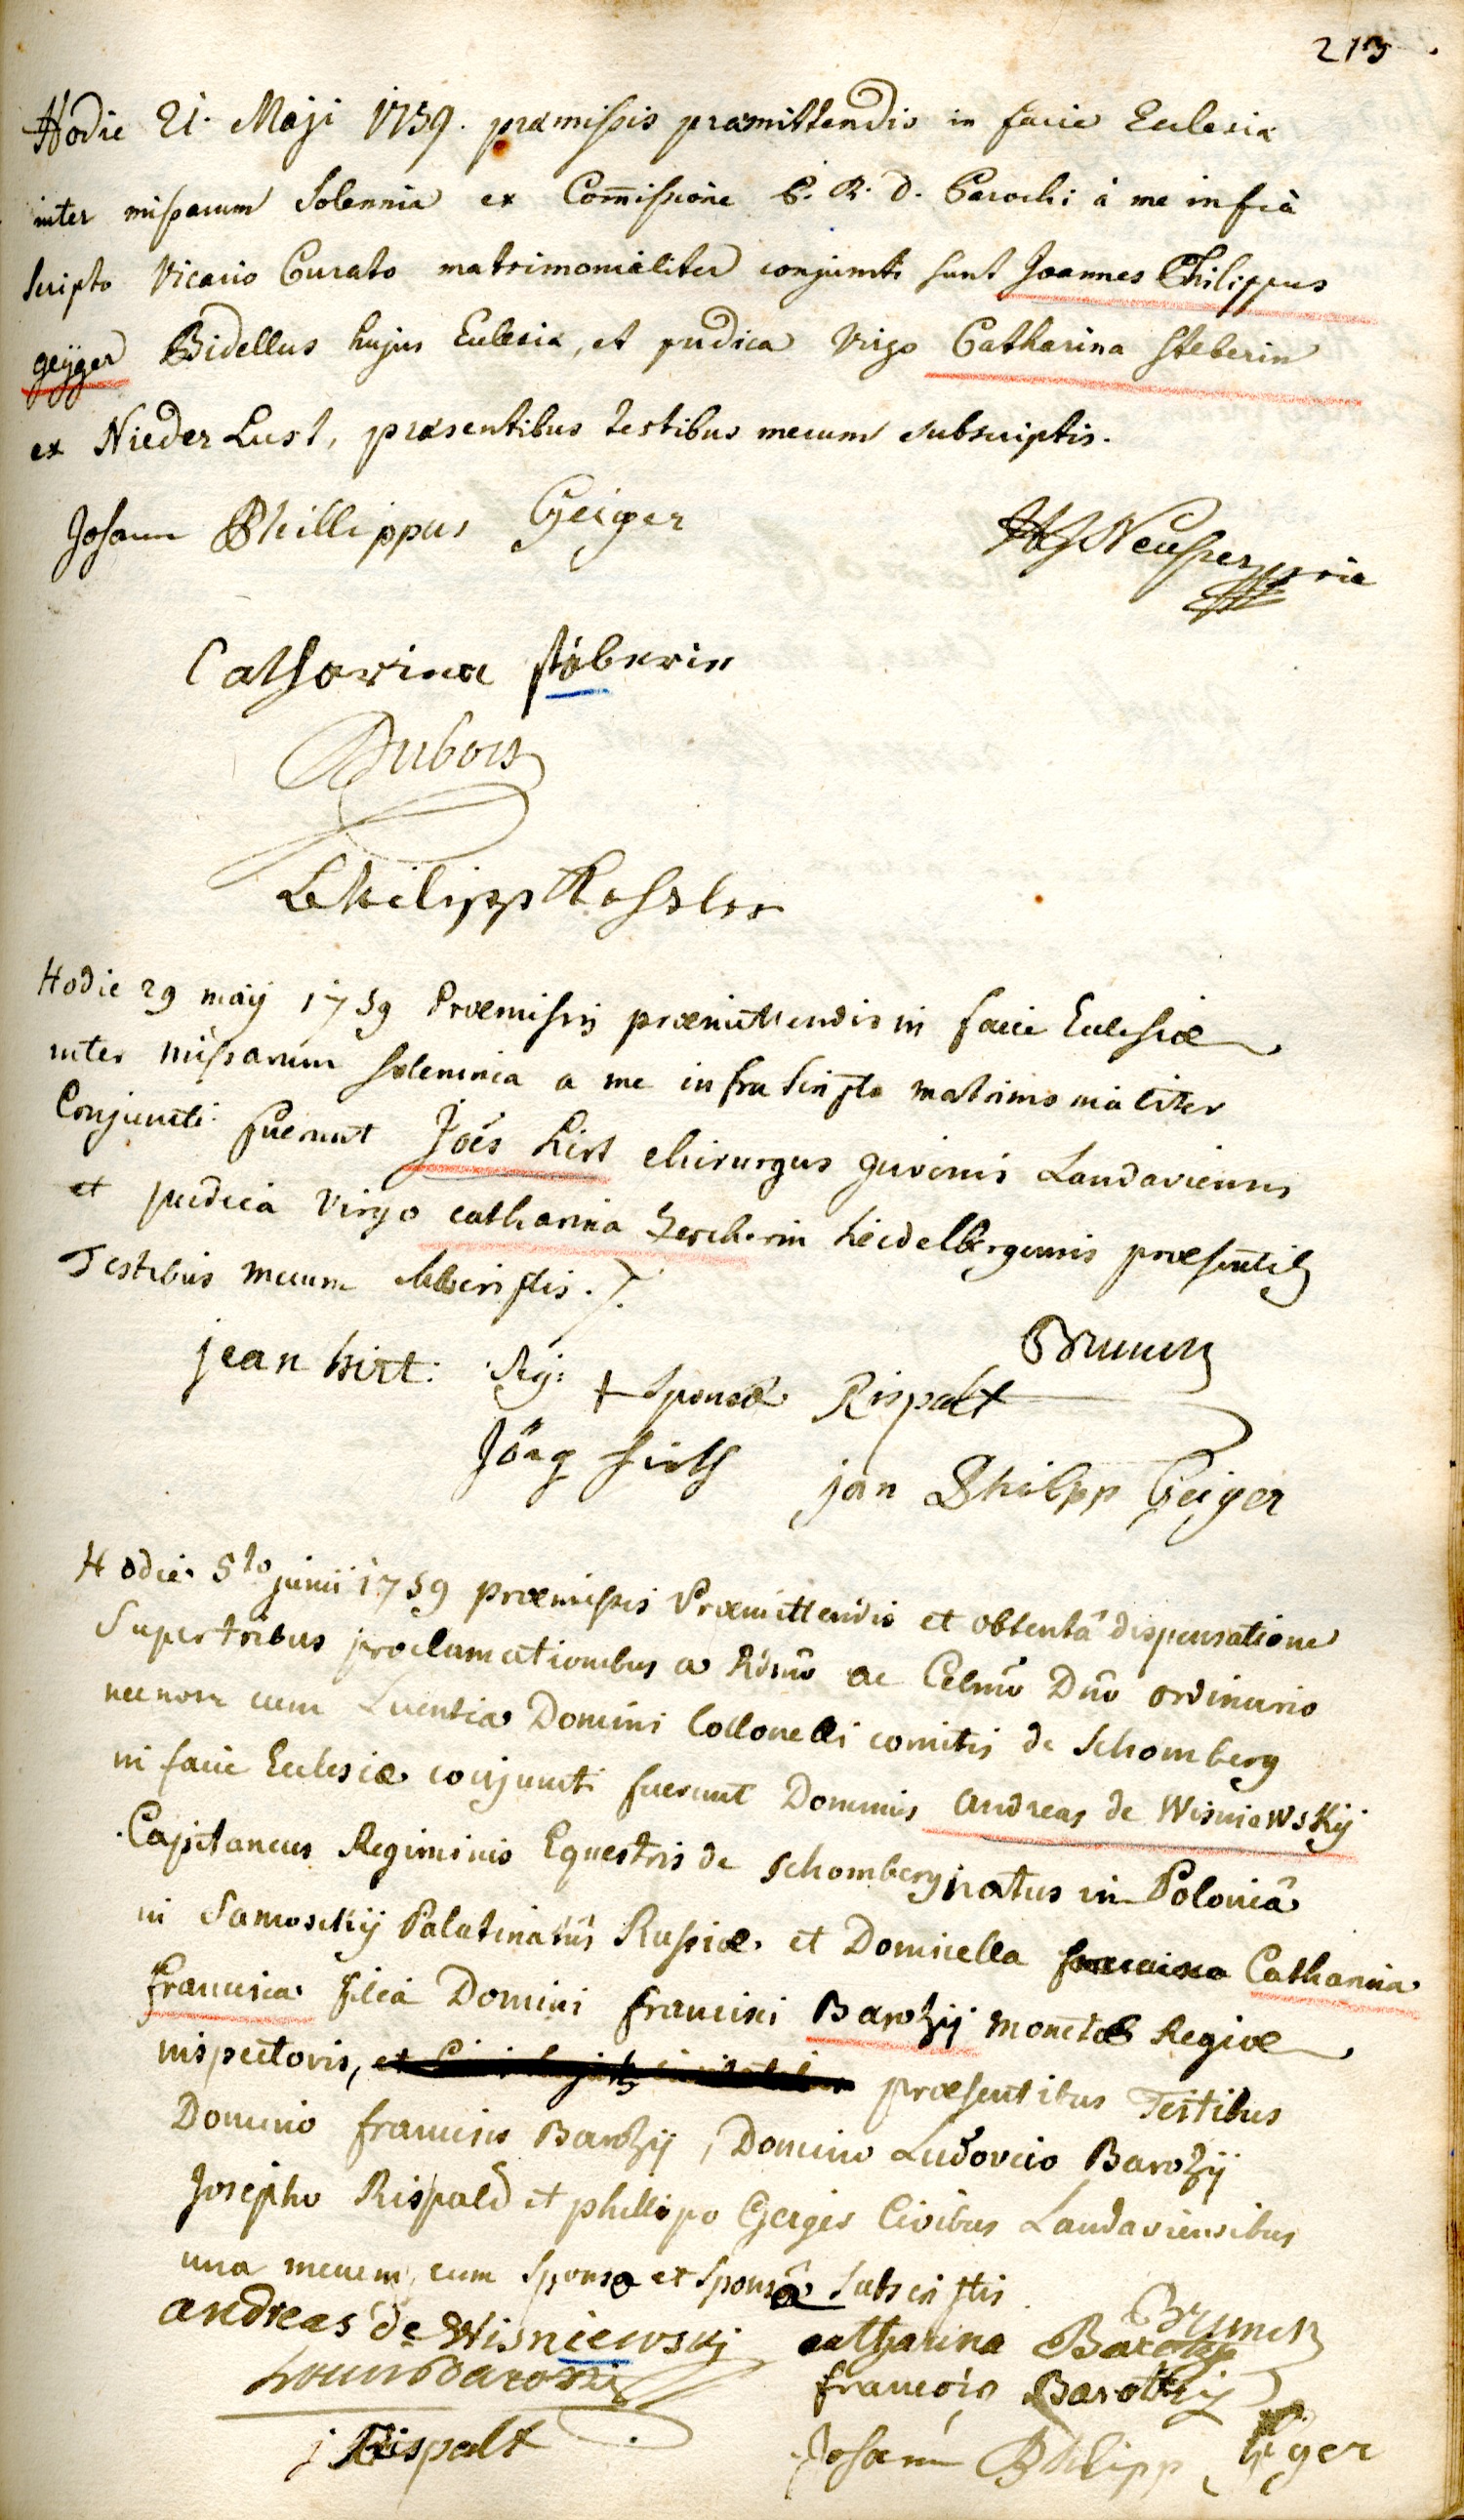 213
Hodie 21. Maji 1759. præmissis præmittendis in facie Eclesiæ
inter missarum Solennia ex Com̄issione P. R. D. Parochi à me infrà
scripto Vicario Curato matrimonialiter conjuncti sunt Joannes Philippus
geÿger Bidellus hujus Eclesiæ, et pudica Virgo Catharina Steberin
ex Nieder Lust, præsentibus testibus mecum subscriptis.
Johann Phillippus Geiger
Catharina stöberin
Dubois
Philipp Kessler
Hodie 29 maÿ 1759 Præmissis præmittendis in facie Eclesiæ
inter missarum solemnia a me infra scripto matrimonialiter
Conjuncti fuerunt Joēs hirt chirurgus juvenis Landaviensis
et pudica Virgo catharina heidelbergensis præsentib
Testibus mecum subscriptis.
Brunck
jean hirt. Sig: + sponsæ Rispalt
Jörg hirth jan Philpp Geiger
Hodie 5to junii 1759 præmissis Præmittendis et obtentâ dispensatione
Super tribus proclamationibus a Rdmo ac Celmo Dno ordinario
nec non cum Licentia Domini Collonelli comitis de Schomberg
in facie Eclesiæ conjuncti fuerunt Dominus Andreas de WisniewsKÿ
Capitaneus Regiminis Equestris de schomberg natus in Poloniâ
in Samosckÿ Palatinatûs Russiæ. et Domicella francisca Catharina
francisca filia Domini francisci Barozÿ monetæ Regiæ
inspectoris, præsentibus Testibus
Domino francisco Barozÿ, Domino Ludovico Barozÿ
Josepho Rispald et phillipo Geiger Civibus Landaviensibus
una mecum cum sponso et sponsâ subscriptis.
andreas de Wisniewskj catharina Barozy Brunck
Louis Barozzi francois Barottzÿ
j Rispalt Johann Philipp